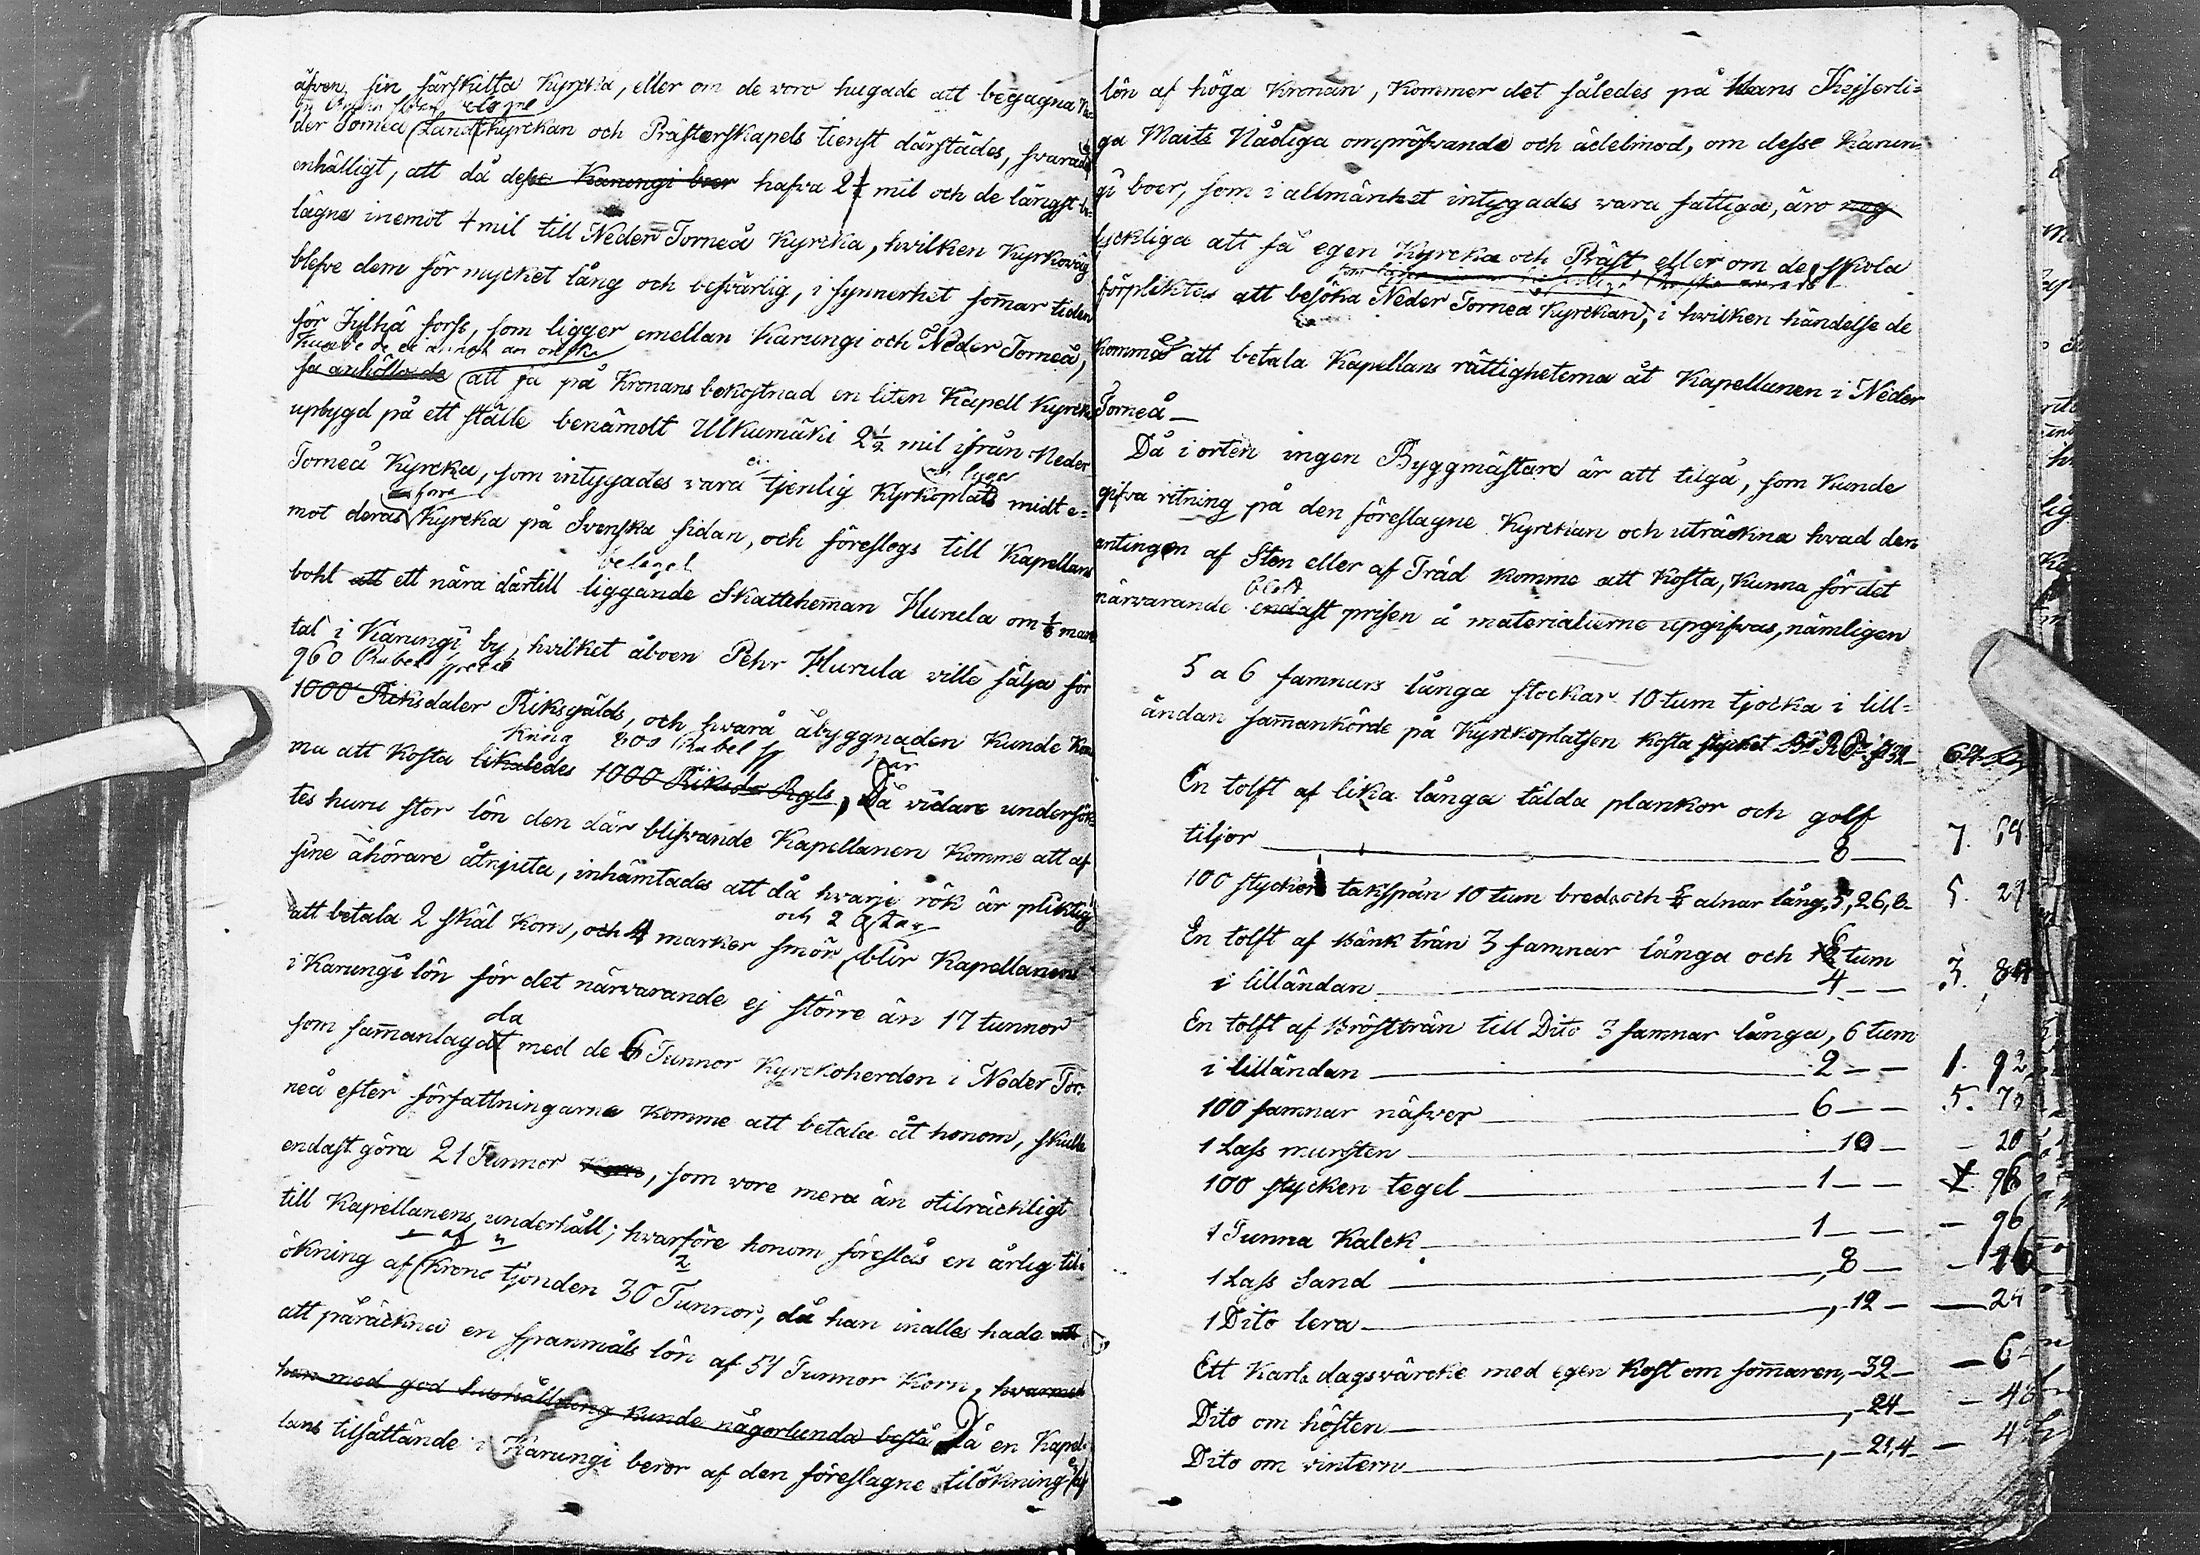 äfven sin särskilta Kyrcka, eller om de voro hugade att begagna Ne-
der Torneå Land Kyrckan och Prästerskapets tienst därstädes, svarade
enhälligt, att då desse Karungi boer hafva 2½ mil och de längst be-
lägne inemot 4 mil till Neder Torneå Kyrcka, hvilken Kyrkoväg
blefve dem för mycket lång och besvärlig, i synnerhet som̄ar tiden
för Jylhä fors, som ligger emellan Karungi och Neder Torneå,
så anhöllo de att få på Kronans bekostnad en liten Kapell Kyrcka
upbygd på ett ställe benämdt Ulkumäki 2½ mil ifrån Neder
Torneå Kyrcka, som intygades vara tjenlig Kyrkoplats midt e-
mot deras förra Kyrcka på Svenska sidan, och föreslogs till Kapellans
belägel
bohl att ett nära därtill liggande Skattehem̄an Hurula om ⅛ man
tal i Karungi by, hvilket åboen Pehr Hurula ville sälja för
960 Rubel
1000 Riksdaler Riksgälds, och hvarå åbyggnaden kunde kom
kring 800 Rubel
ma att kosta likaledes 1000 Riksd. Rgls, Då vidare undersök-
tes huru stor lön den där blifvande Kapellanen komme att af
sine åhörare åtnjuta, inhämtades att då hvarje rök är pliktig
att betala 2 skäl Korn, och 4 marker smör, blir Kapellanens
och 2
i Karungi lön för det närvarande ej större än 17 tunnor
da
som sam̄anlagdt med de 6 Tunnor Kyrckoherden i Neder Tor-
neå efter författningarne komme att betala åt honom, skulle
endast göra 21 Tunnor Korn, som vore mera än otilräckligt
till Kapellanens underhåll; hvarföre honom föreslås en årlig til-
ökning af Krono tjonden 30 Tunnor, då han inalles hade
att påräckna en spanmåls lön af 51 Tunnor Korn, hvarmed
han med god hushållning kunde någorlunda bestå Då en Kapel-
lans tilsättande i Karungi beror af den föreslagne tilökning af
lön af höga Kronan, kommer det således på Hans Kejserli-
ga Maits Nådiga ompröfvande och ädelmod, om desse Karun-
gi boer, som i allmänhet intygades vara fattiga, äro nog
lyckliga att få egen Kyrcka och Präst, eller om de skola
förpliktes att besöka Neder Torneå Kyrckan, i hvilken händelse de
komma att betala Kapellans rättigheterna åt Kapellanen i Neder
Torneå –
Då i orten ingen Byggmästare är att tilgå, som kunde
gifva ritning på den föreslagne Kyrckan och uträckna hvad den
antingen af Sten eller af Träd komme att kosta, kunna för det
blott
närvarande endast prisen å materialierne upgifvas, nämligen
5 a 6 famnars långa stockar 10 tum tjocka i lill-
ändan sam̄ankörde på Kyrckoplatsen kosta stycket 32 – 64
En tolft af lika långa tälda plankor och golf
tiljor 8 – 7. 68
100 stycken takspån 10 tum bred och 5/4 alnar lång, 5, 26, 8 – 5. 29
En tolft af Bänk trän 3 famnar långa och 6 tum
i lilländan 4 – – 3. 84
En tolft af Bröstträn till Dito 3 famnar långa, 6 tum
i lilländan 2 – – 1. 92
100 famnar näfver 6 – – 5. 76
1 Lass mursten 10 – – 20
100 stycken tegel 1 – – 96
1 Tunna Kalck 1 – – – 96
1 Lass Sand , 8 – – 16
1 Dito lera , 12 – – 24
Ett Karls dagsvärcke med egen kost om som̄aren, – 32 – – 64
Dito om hösten , – 24 – – 48
Dito om vintern , – 21,4 – – 4